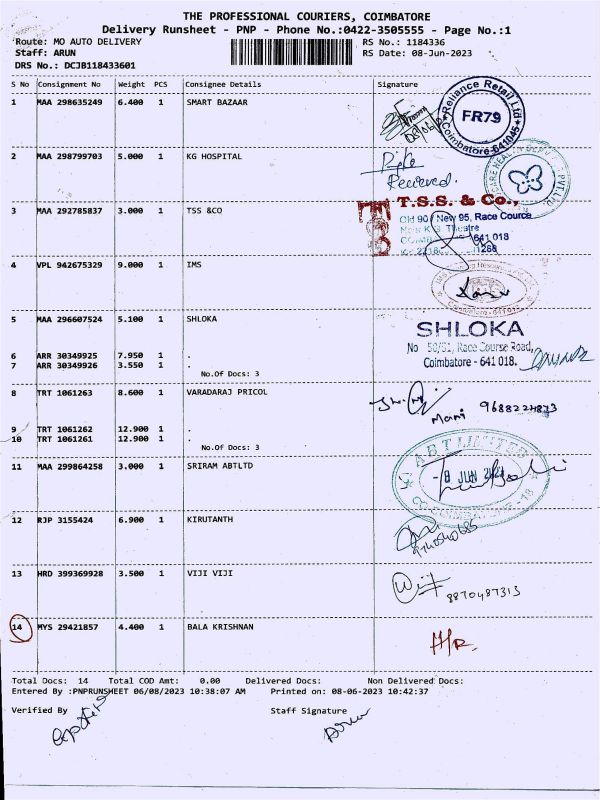 THE PROFESSIONAL COURIERS, COIMBATORE
Delivery Runsheet - PNP - Phone No.:0422-3505555 - Page No.:1
Route: MO AUTO DELIVERY RS No.: 1184336
Staff: ARUN RS Date: 08-Jun-2023
DRS No.: DCJB118433601
S No Consignment No Weight PCS Consignee Details Signature
1 MAA 298635249 6.400 1 SMART BAZAAR
Reliance Retail Ltd
FR79
Coimbatore-641045
2 MAA 298799703 5.000 1 KG HOSPITAL
Received.
3 MAA 292785837 3.000 1 TSS &CO
T.S.S. & Co.,
Old 90 / New 95, Race Course
Theatre
641 018
4 VPL 942675329 9.000 1 IMS
5 MAA 296607524 5.100 1 SHLOKA
SHLOKA
No 50/51, Race Course Road,
Coimbatore - 641 018.
6 ARR 30349925 7.950 1
7 ARR 30349926 3.550 1
No.Of Docs: 3
8 TRT 1061263 8.600 1 VARADARAJ PRICOL
Mani
9 TRT 1061262 12.900 1
10 TRT 1061261 12.900 1
No.Of Docs: 3
11 MAA 299864258 3.000 1 SRIRAM ABTLTD
A.B.T LIMITED
-8 JUN 2023
COIMBATORE-18
12 RJP 3155424 6.900 1 KIRUTANTH
13 HRD 399369928 3.500 1 VIJI VIJI
8870487313
14 MYS 29421857 4.400 1 BALA KRISHNAN
Total Docs: 14 Total COD Amt: 0.00 Delivered Docs: Non Delivered Docs:
Entered By :PNPRUNSHEET 06/08/2023 10:38:07 AM Printed on: 08-06-2023 10:42:37
Verified By Staff Signature